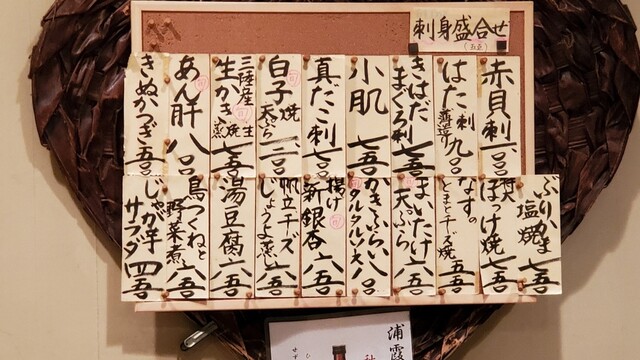 刺身盛合せ
赤貝刺 一、二〇〇
はた刺 薄造 九〇〇
きはだまぐろ刺 七五〇
小肌 七五〇
真だこ刺 七〇〇
白子 焼 天ぷら 一、二〇〇
三陸産 生かき 生 焼 蒸 七五〇
あん肝 八〇〇
きぬかつぎ 五〇〇
ぶりかま塩焼 七五〇
ほっけ焼 七五〇
なすのとまとチーズ焼 五五〇
まいたけ天ぷら 六五〇
かきふらい タルタルソース 八〇〇
揚げ新銀杏 六五〇
帆立チーズじょうよ蒸 六五〇
湯豆腐 六五〇
鳥つくねと野菜煮 六五〇
じゃが芋サラダ 四五〇
浦霞